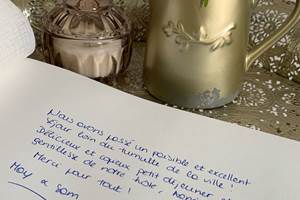 Nous avons passé un paisible et excellent
séjour loin du tumulte de la ville !
Délicieux et copieux petit déjeuner et
gentillesse de notre hôte,
Merci pour tout !
May & Sam